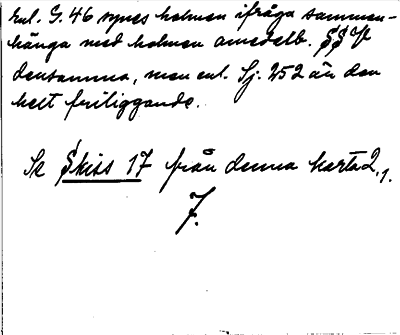 Enl. G. 46 synes holmen ifråga samman-
hänga med holmen omedelb. SSV
densamma, men enl. Sj. 252 är den
helt friliggande.
Se Skiss 17 från denna karta 2,1.
7.